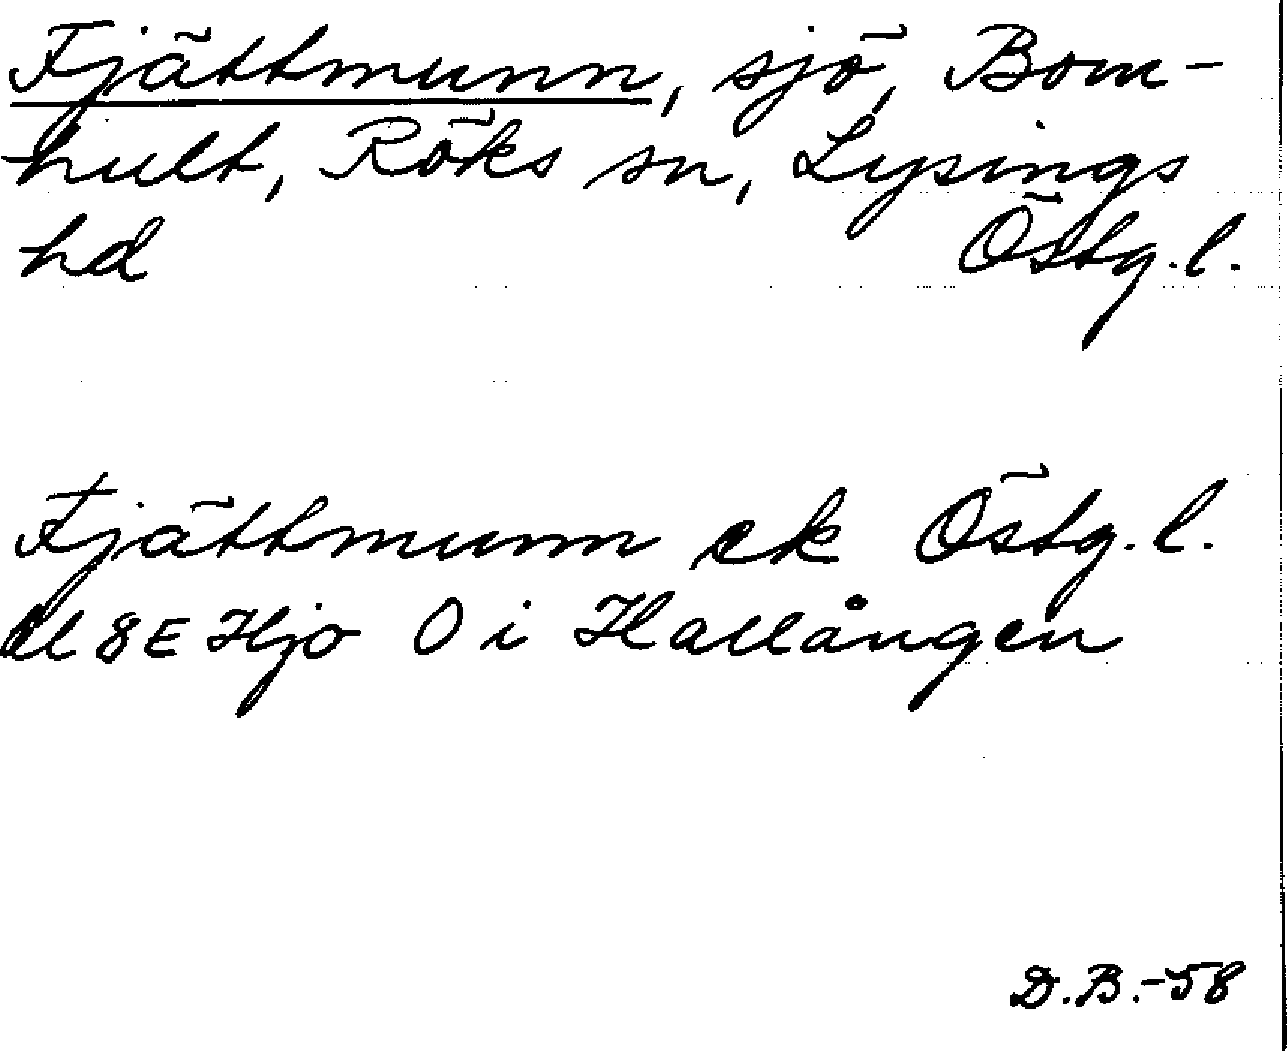 Fjättmunn, sjö, Bom-
hult, Röks sn, Lysings
hd Östg.l.
Fjättmunn ek Östg.l.
bl 8E Hjo O i Hallången
D.B.-58